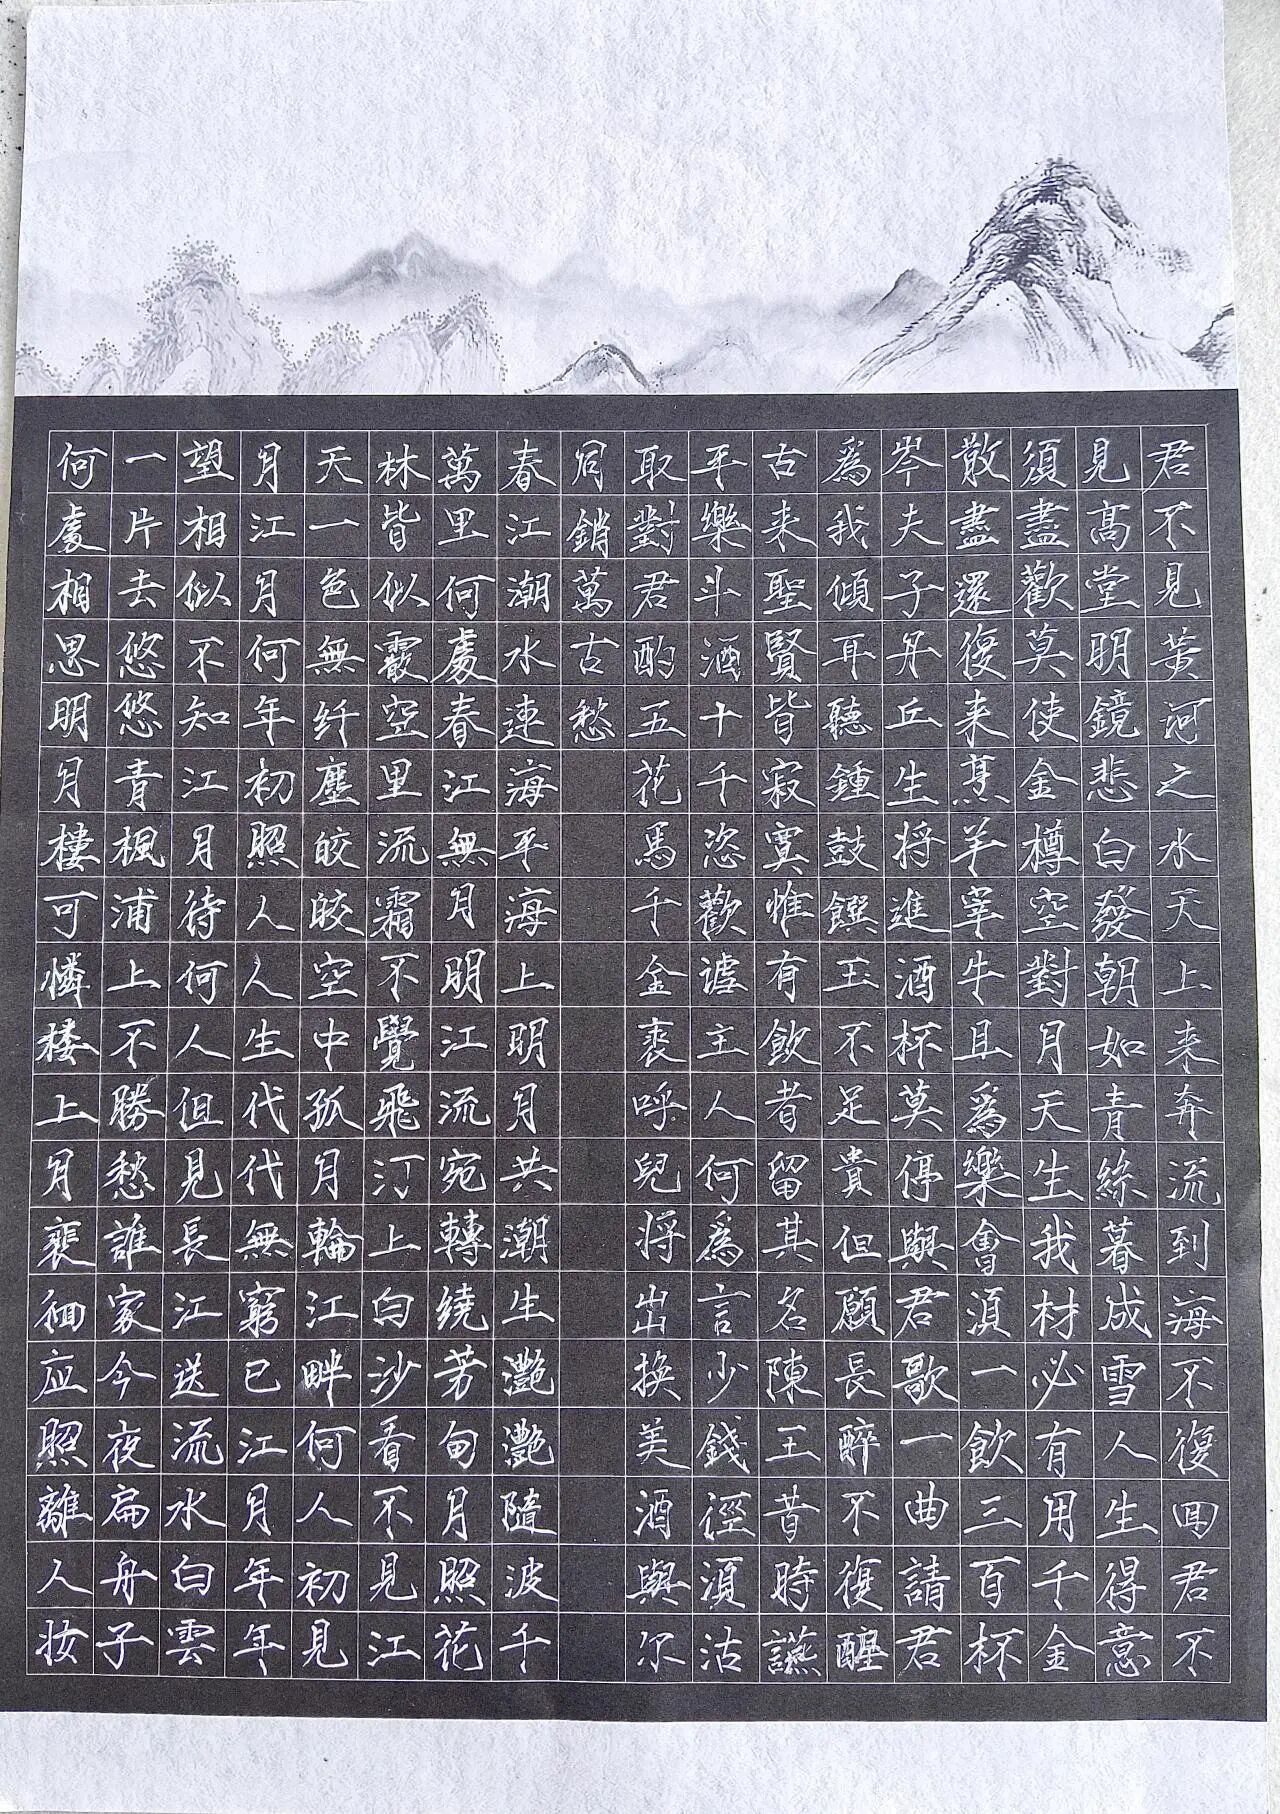 君不見黃河之水天上来奔流到海不復回君不
見高堂明鏡悲白發朝如青絲暮成雪人生得意
須盡歡莫使金樽空對月天生我材必有用千金
散盡還復来烹羊宰牛且爲樂會須一飲三百杯
岑夫子丹丘生将進酒杯莫停與君歌一曲請君
爲我傾耳聽鍾鼓饌玉不足貴但願長醉不復醒
古来聖賢皆寂寞惟有飲者留其名陳王昔時讌
平樂斗酒十千恣歡謔主人何爲言少錢徑須沽
取對君酌五花馬千金裘呼兒将出換美酒與尔
同銷萬古愁
春江潮水連海平海上明月共潮生灧灧隨波千
萬里何處春江無月明江流宛轉繞芳甸月照花
林皆似霰空里流霜不覺飛汀上白沙看不見江
天一色無纤塵皎皎空中孤月輪江畔何人初見
月江月何年初照人人生代代無窮已江月年年
望相似不知江月待何人但見長江送流水白雲
一片去悠悠青楓浦上不勝愁誰家今夜扁舟子
何處相思明月樓可憐楼上月裴徊应照離人妆